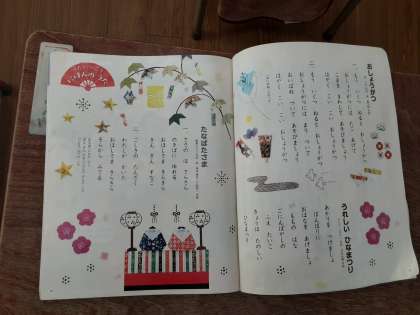 おしょうがつ
一、もう いくつ ねると おしょうがつ
おしょうがつには たこ あげて
こまを まわして あそびましょう
はやく こい こい おしょうがつ
二、もう いくつ ねると おしょうがつ
おしょうがつには まり ついて
おいばね ついて あそびましょう
はやく こい こい おしょうがつ
うれしい ひなまつり
あかりを つけましょ
ぼんぼりに
おはなを あげましょ
もものはな
ごにんばやしの
ふえ たいこ
きょうは たのしい
ひなまつり
にほんのうた
たなばたさま
一、ささの は さらさら
のきばに ゆれる
おほしさま きらきら
きん ぎん すなご
二、ごしきの たんざく
わたしが かいた
おほしさま きらきら
そらから みてる